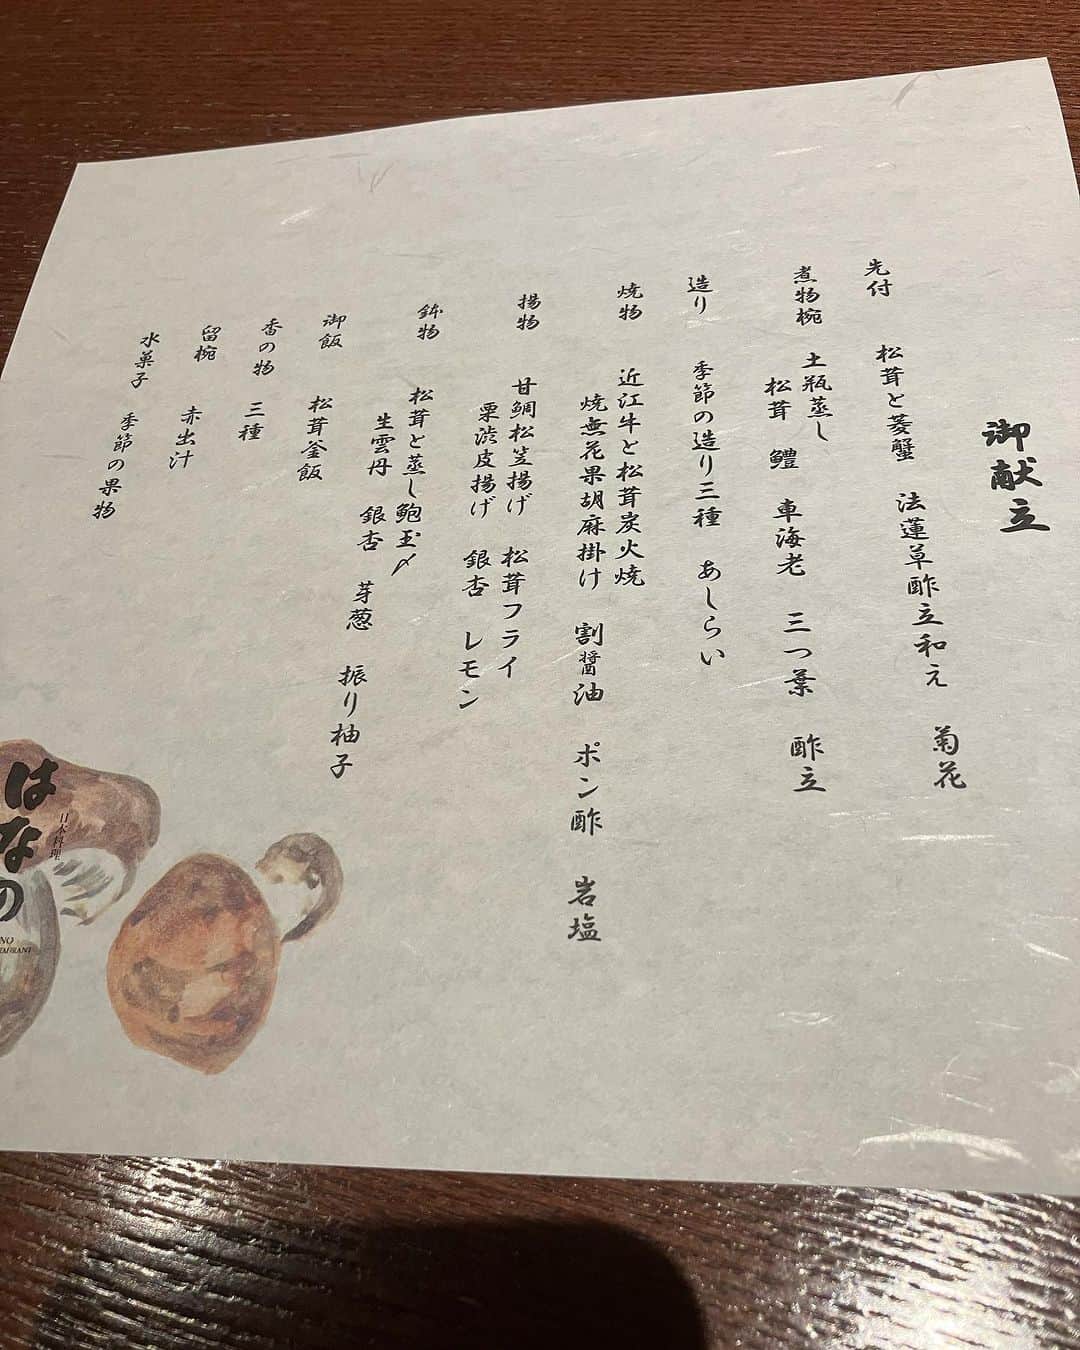 御献立
先付　松茸と菱蟹　法蓮草酢立和え　菊花
煮物椀　土瓶蒸し
松茸　鱧　車海老　三つ葉　酢立
造り　季節の造り三種　あしらい
焼物　近江牛と松茸炭火焼
焼無花果胡麻掛け　割醤油　ポン酢　岩塩
揚物　甘鯛松笠揚げ　松茸フライ
栗渋皮揚げ　銀杏　レモン
鉢物　松茸と蒸し鮑玉〆
生雲丹　銀杏　芽葱　振り柚子
御飯　松茸釜飯
香の物　三種
留椀　赤出汁
水菓子　季節の果物
日本料理
はなの